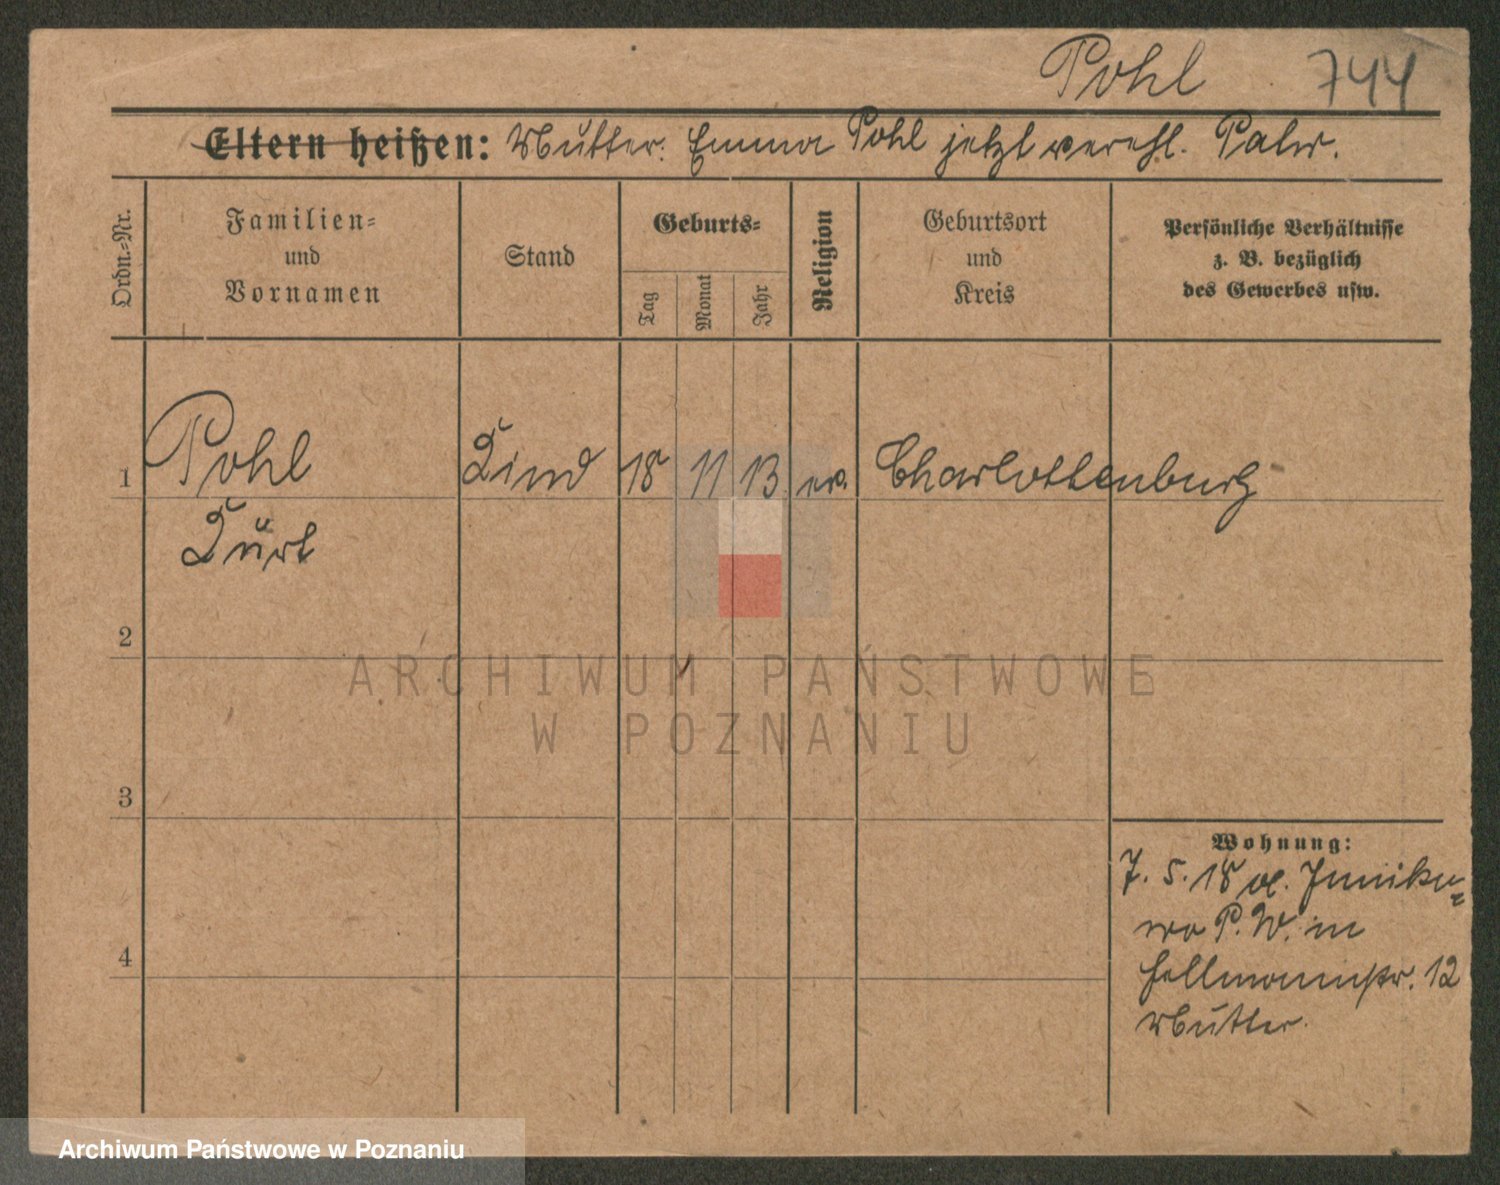 Pohl 744
Eltern heißen: Mutter: Emma Pohl jetzt verehl.
Ordn.-Nr.
Familien-
und
Vornamen
Stand
Geburts-
Tag
Monat
Jahr
Religion
Geburtsort
und
Kreis
Persönliche Verhältnisse
z. B. bezüglich
des Gewerbes usw.
1 Pohl Kind 18 11 13 ev. Charlottenburg
Kurt
2
3
4
Wohnung:
7. 5. 18
P. W. in
12
Mutter.
ARCHIWUM PAŃSTWOWE
W POZNANIU
Archiwum Państwowe w Poznaniu